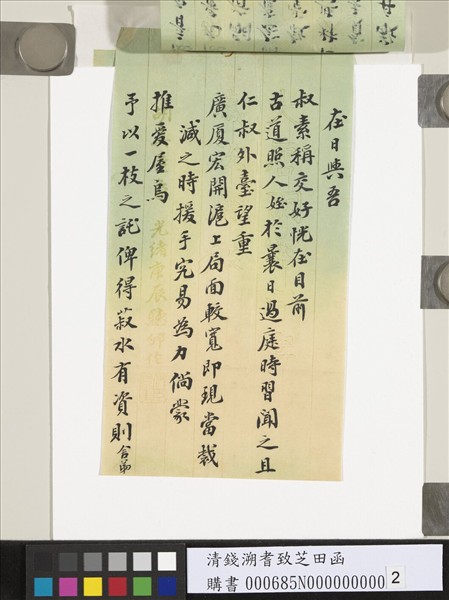 在日與吾
叔素稱交好恍在目前
古道照人姪於曩日過庭時習聞之且
仁叔外臺望重
廣廈宏開滬上局面較寬即現當裁
減之時援手究易為力倘蒙
推愛屋烏
予以一枝之託俾得菽水有資則舍弟
光緒庚辰
清錢溯耆致芝田函
購書 000685N000000000
2